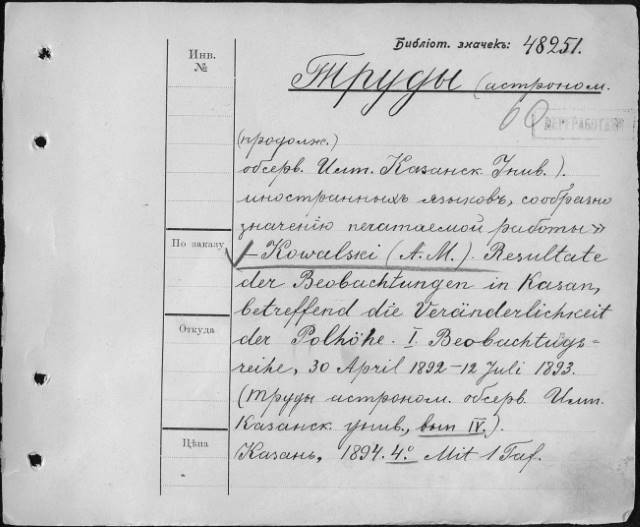 Библіот. значекъ: 48251.
Инв.
№
Труды (астроном.
ПЕРЕРАБОТАН
(продолж.)
обсерв. Имп. Казанск. Унив.).
иностранныхъ языковъ, сообразно
значенію печатаемой работы»
По заказу
– Kowalski (A. M.). Resultate
der Beobachtungen in Kasan,
betreffend die Veränderlichkeit
Откуда
der Polhöhe. I. Beobachtugs=
reihe, 30 April 1892–12 Juli 1893.
(Труды астроном. обсерв. Имп.
Казанск. унив., вып IV.).
Цѣна
Казань, 1894. 4º. Mit 1 Taf.